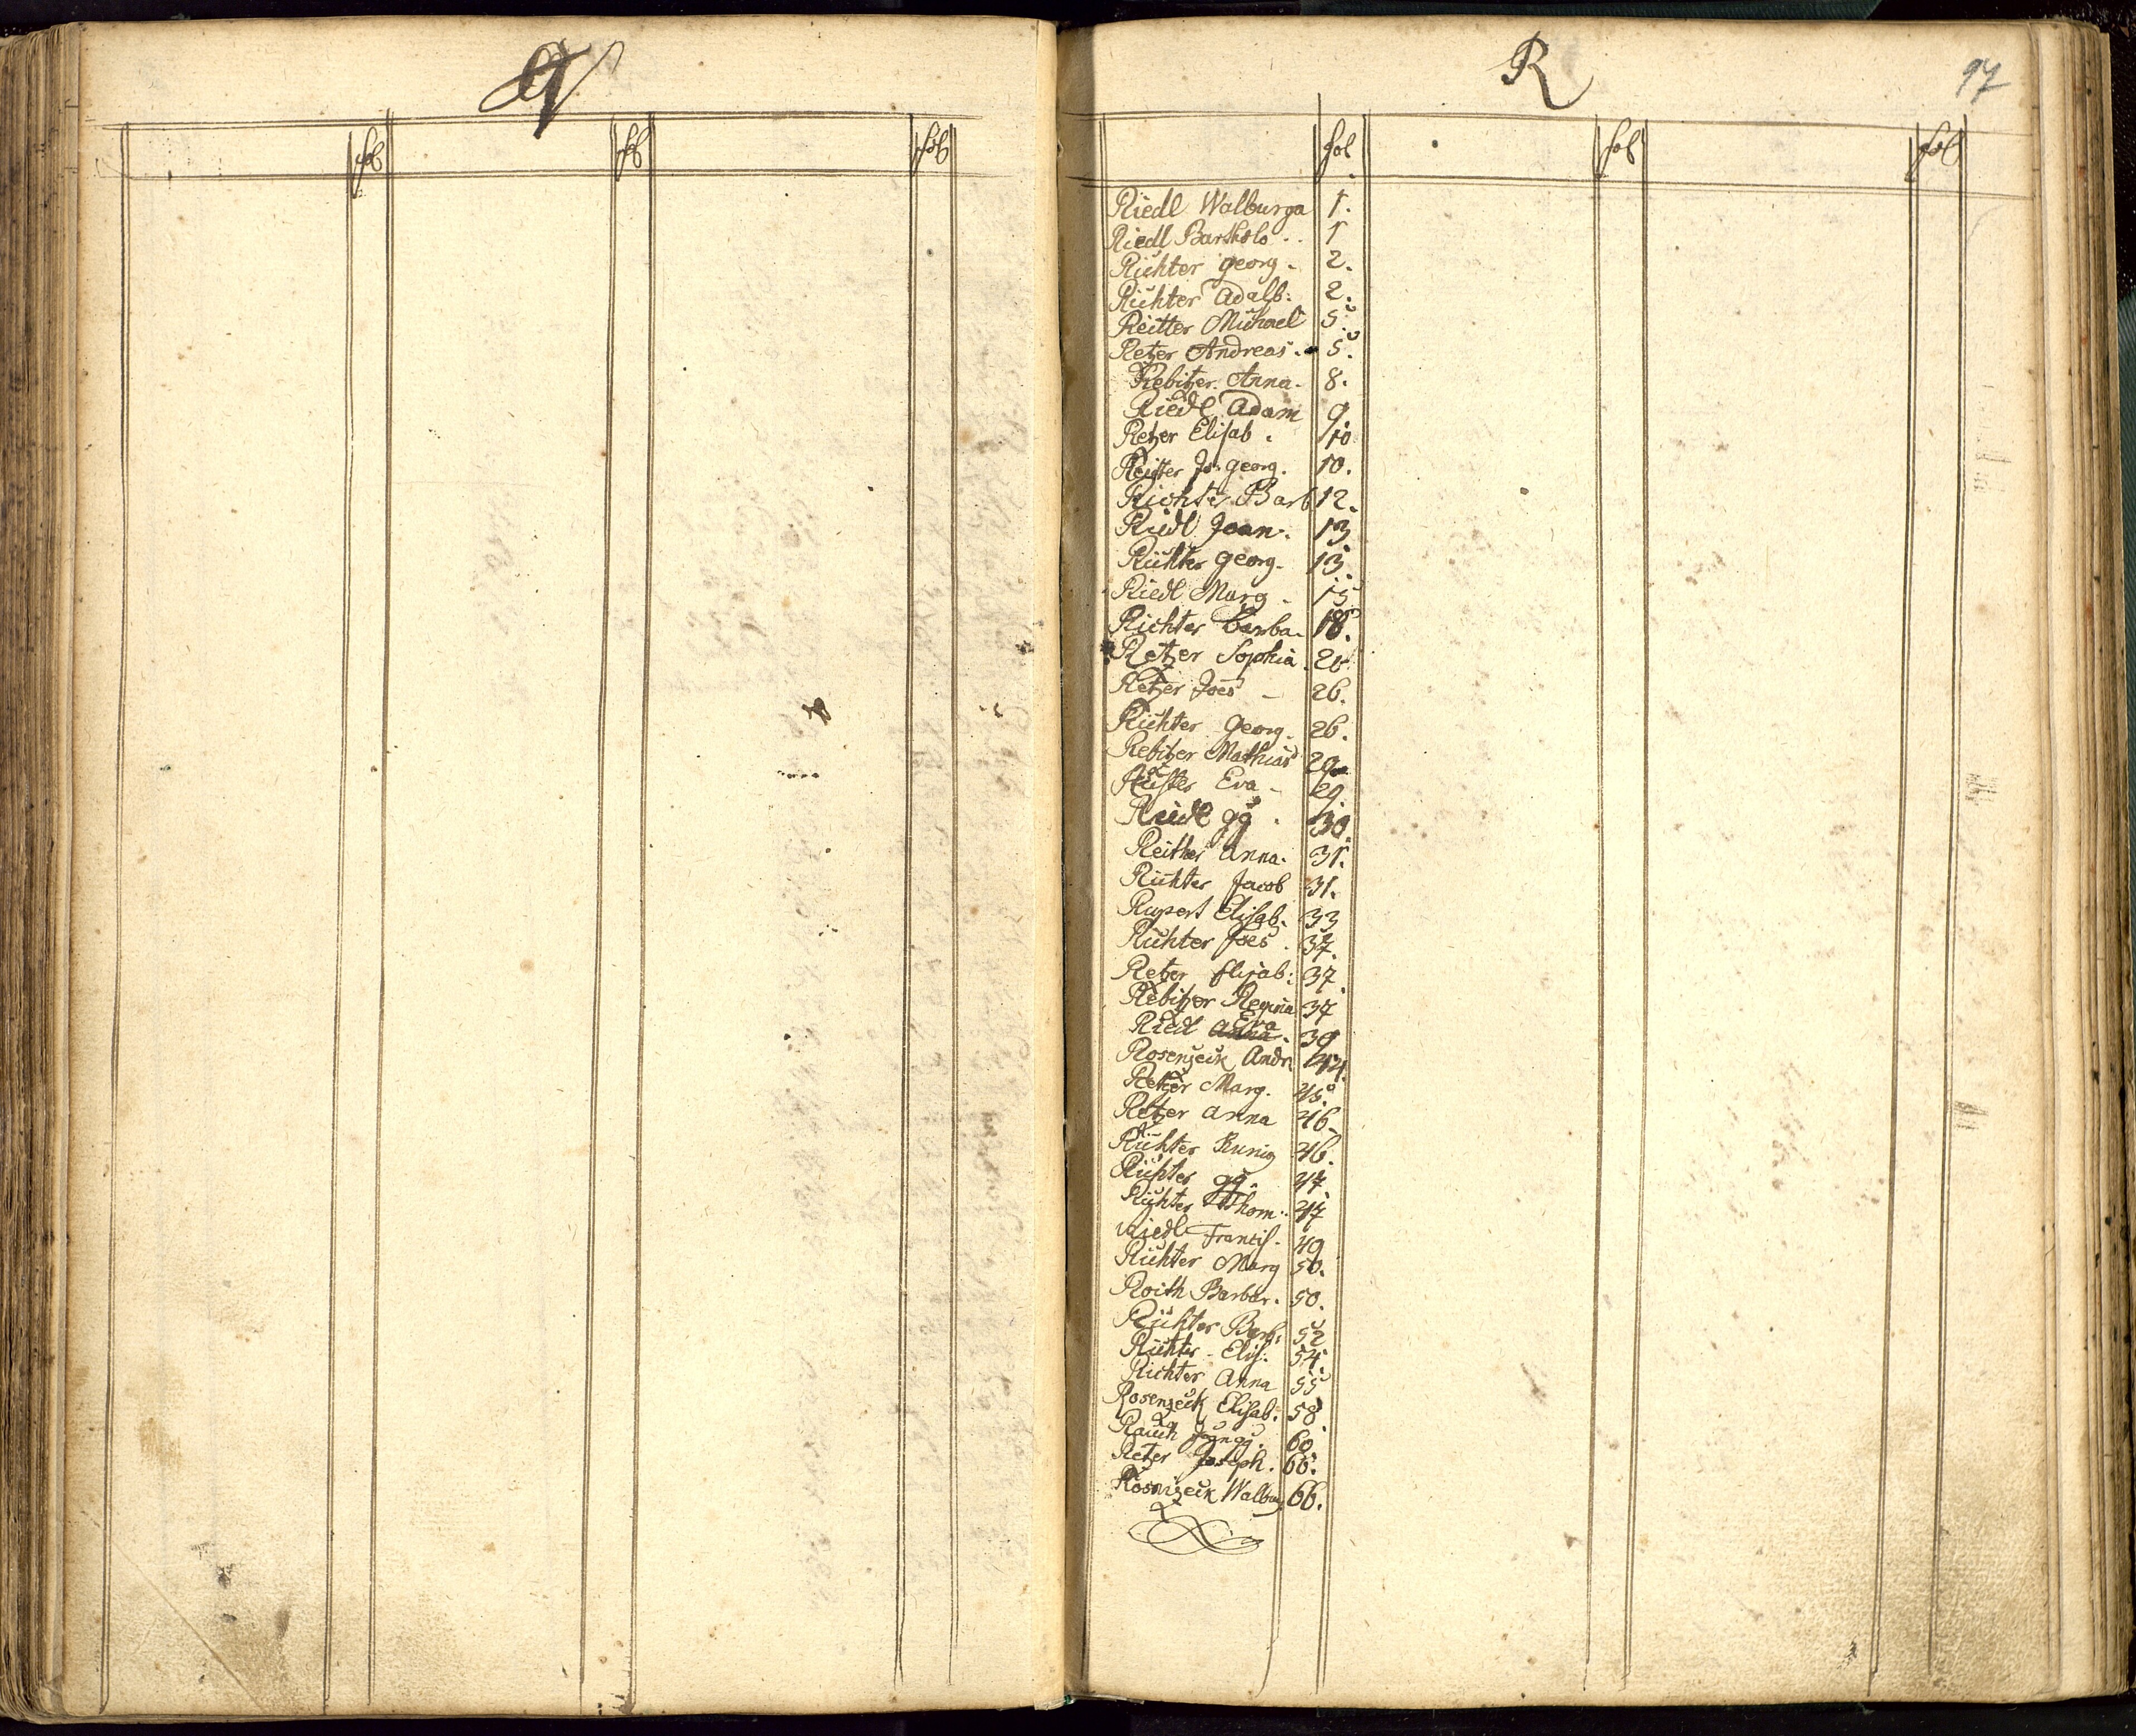 Q
fol fol fol
R
97
fol fol fol
Riedl Walburga 1.
Riedl Bartholo.. 1
Richter georg. 2.
Richter Adalb: 2.
Reitter Michael 5.
Retzer Andreas. 5.
Rebitzer Anna. 8.
Riedl Adam 9.
Retzer Elisab. 10
Jo. georg. 10.
Richte Barb 12.
Riedl Joan. 13
Richter georg. 13.
Riedl Marg 15
Richter Barba. 18.
Retzer Sophia
Retzer Joes 26.
Richter georg. 26.
Rebitzer Mathias 29
Eva 29
Riedl gg. 30.
Reither Anna. 31.
Richter Jacob 31.
Rupert Elisab. 33
Richter Joes. 37.
Retzer Elisab: 37.
Rebitzer Regina 37
Riedl Eva 39
Rosenzeck Andr. 44.
Retzer Marg. 45.
Retzer Anna 46.
Richter Kunig 46.
Richter gg. 47
Richter Thom. 47
Riedl Francis. 49
Richter Marg 50.
Roith Barbar. 50.
Richter Barb: 52
Richter Elis. 54.
Richter Anna 55
Rosenzeck Elisab. 58
Rauch 60
Retzer Joseph. 66.
Walburg 66.